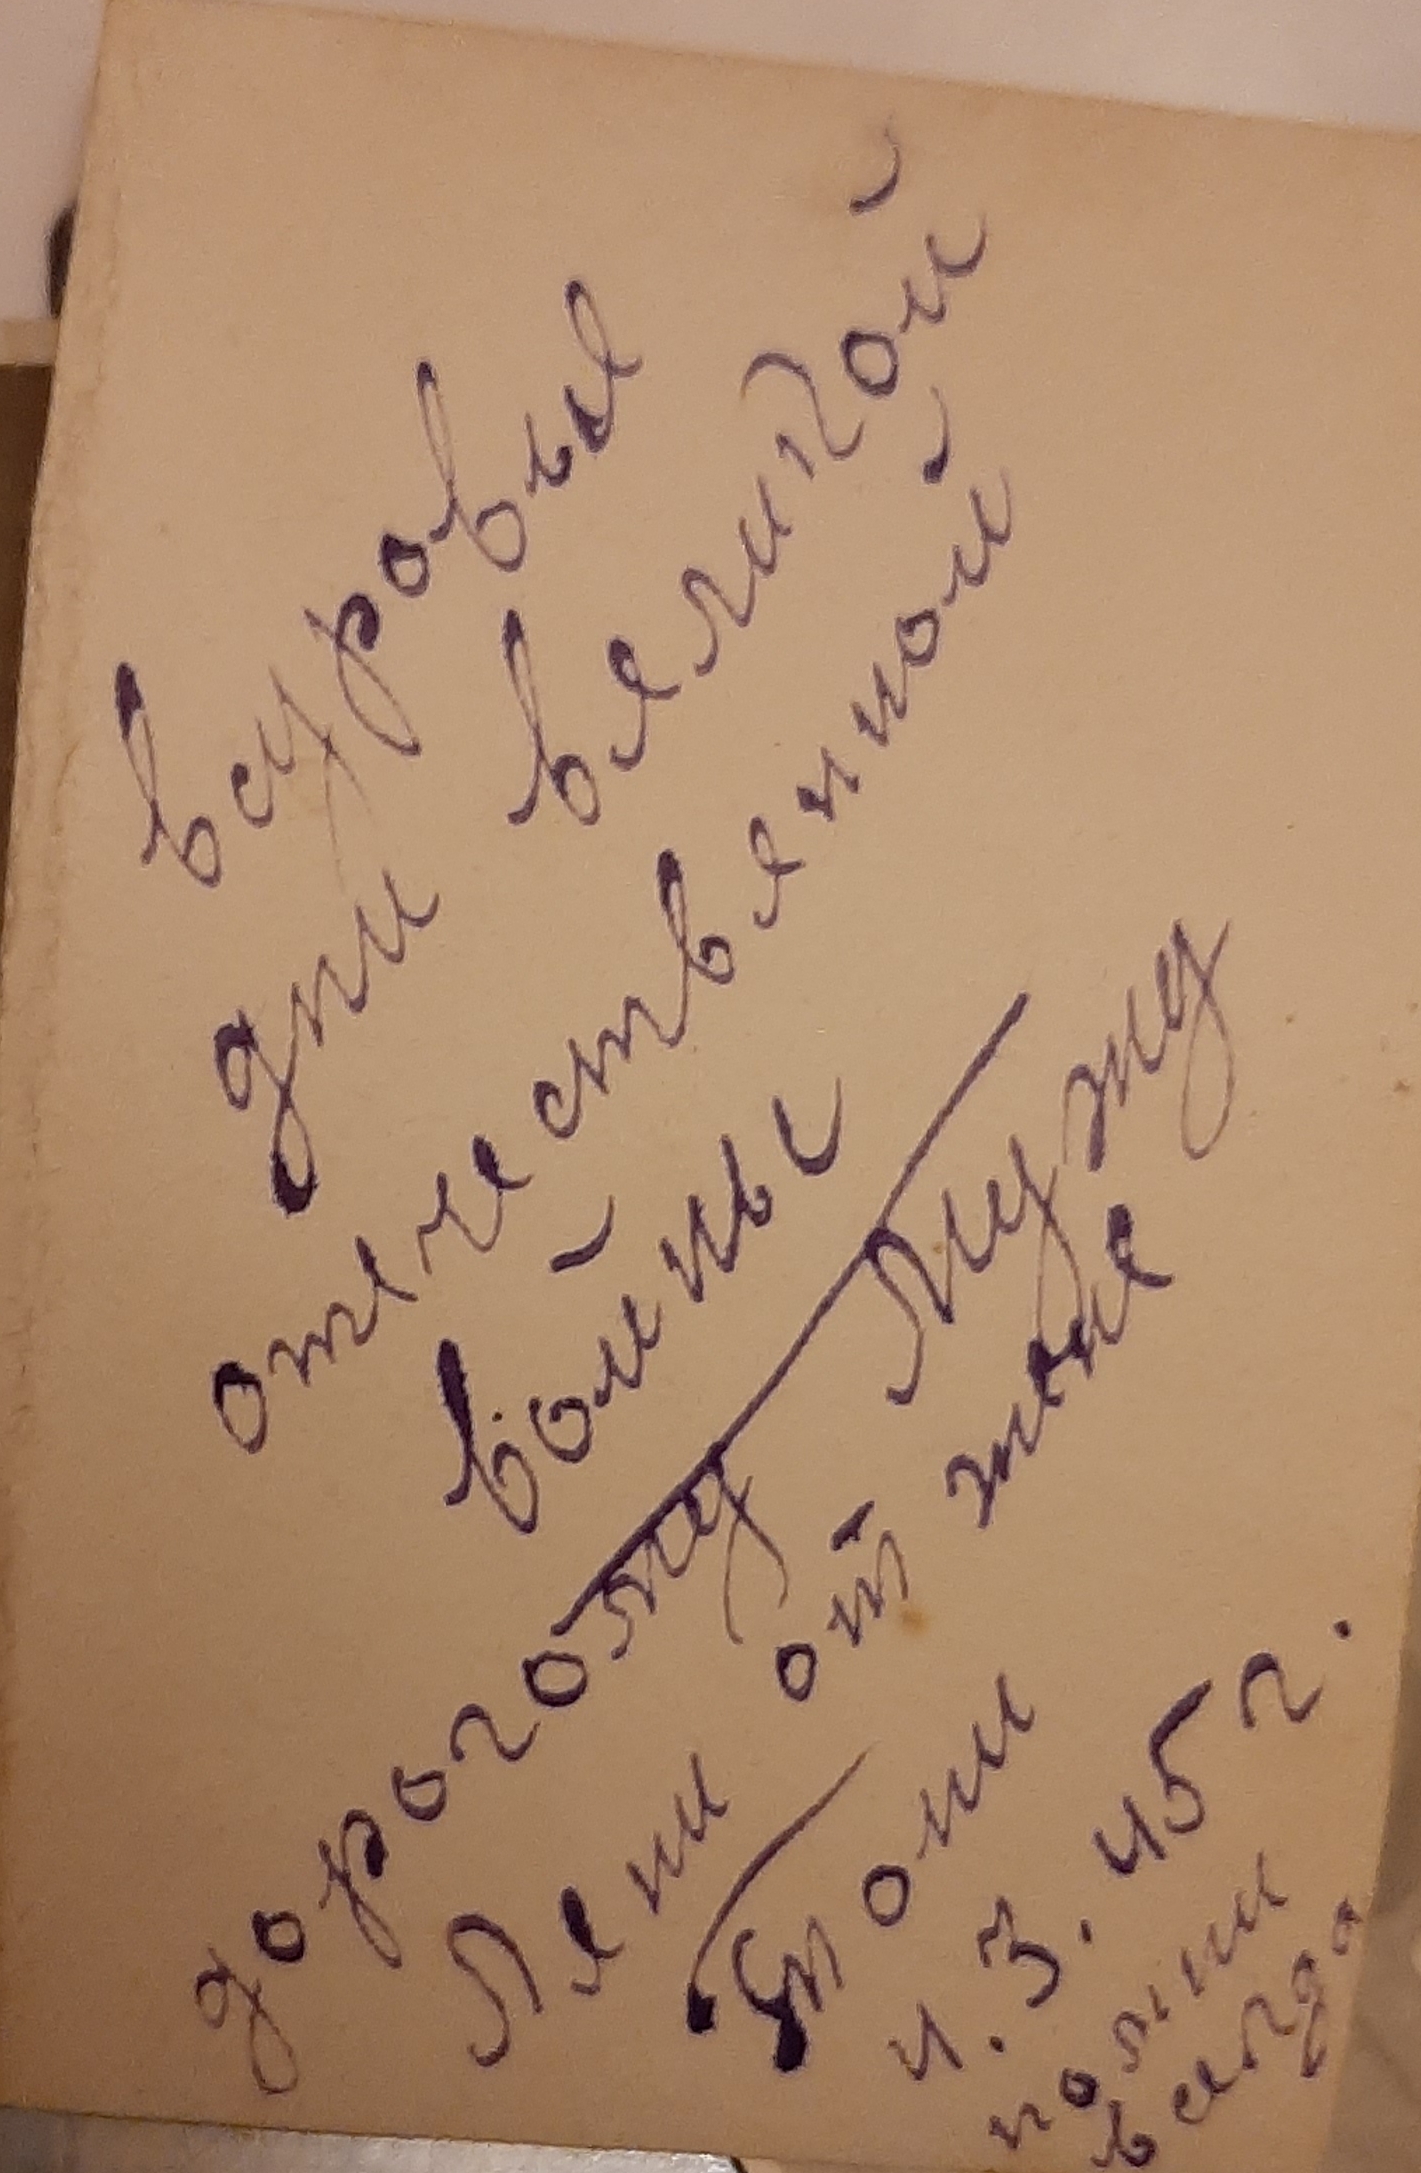 в суровые
дни великой
отечественной
войны
дорогому Мужу
Лени от жене
Тони
4. 3. 45 г.
помни
всегда